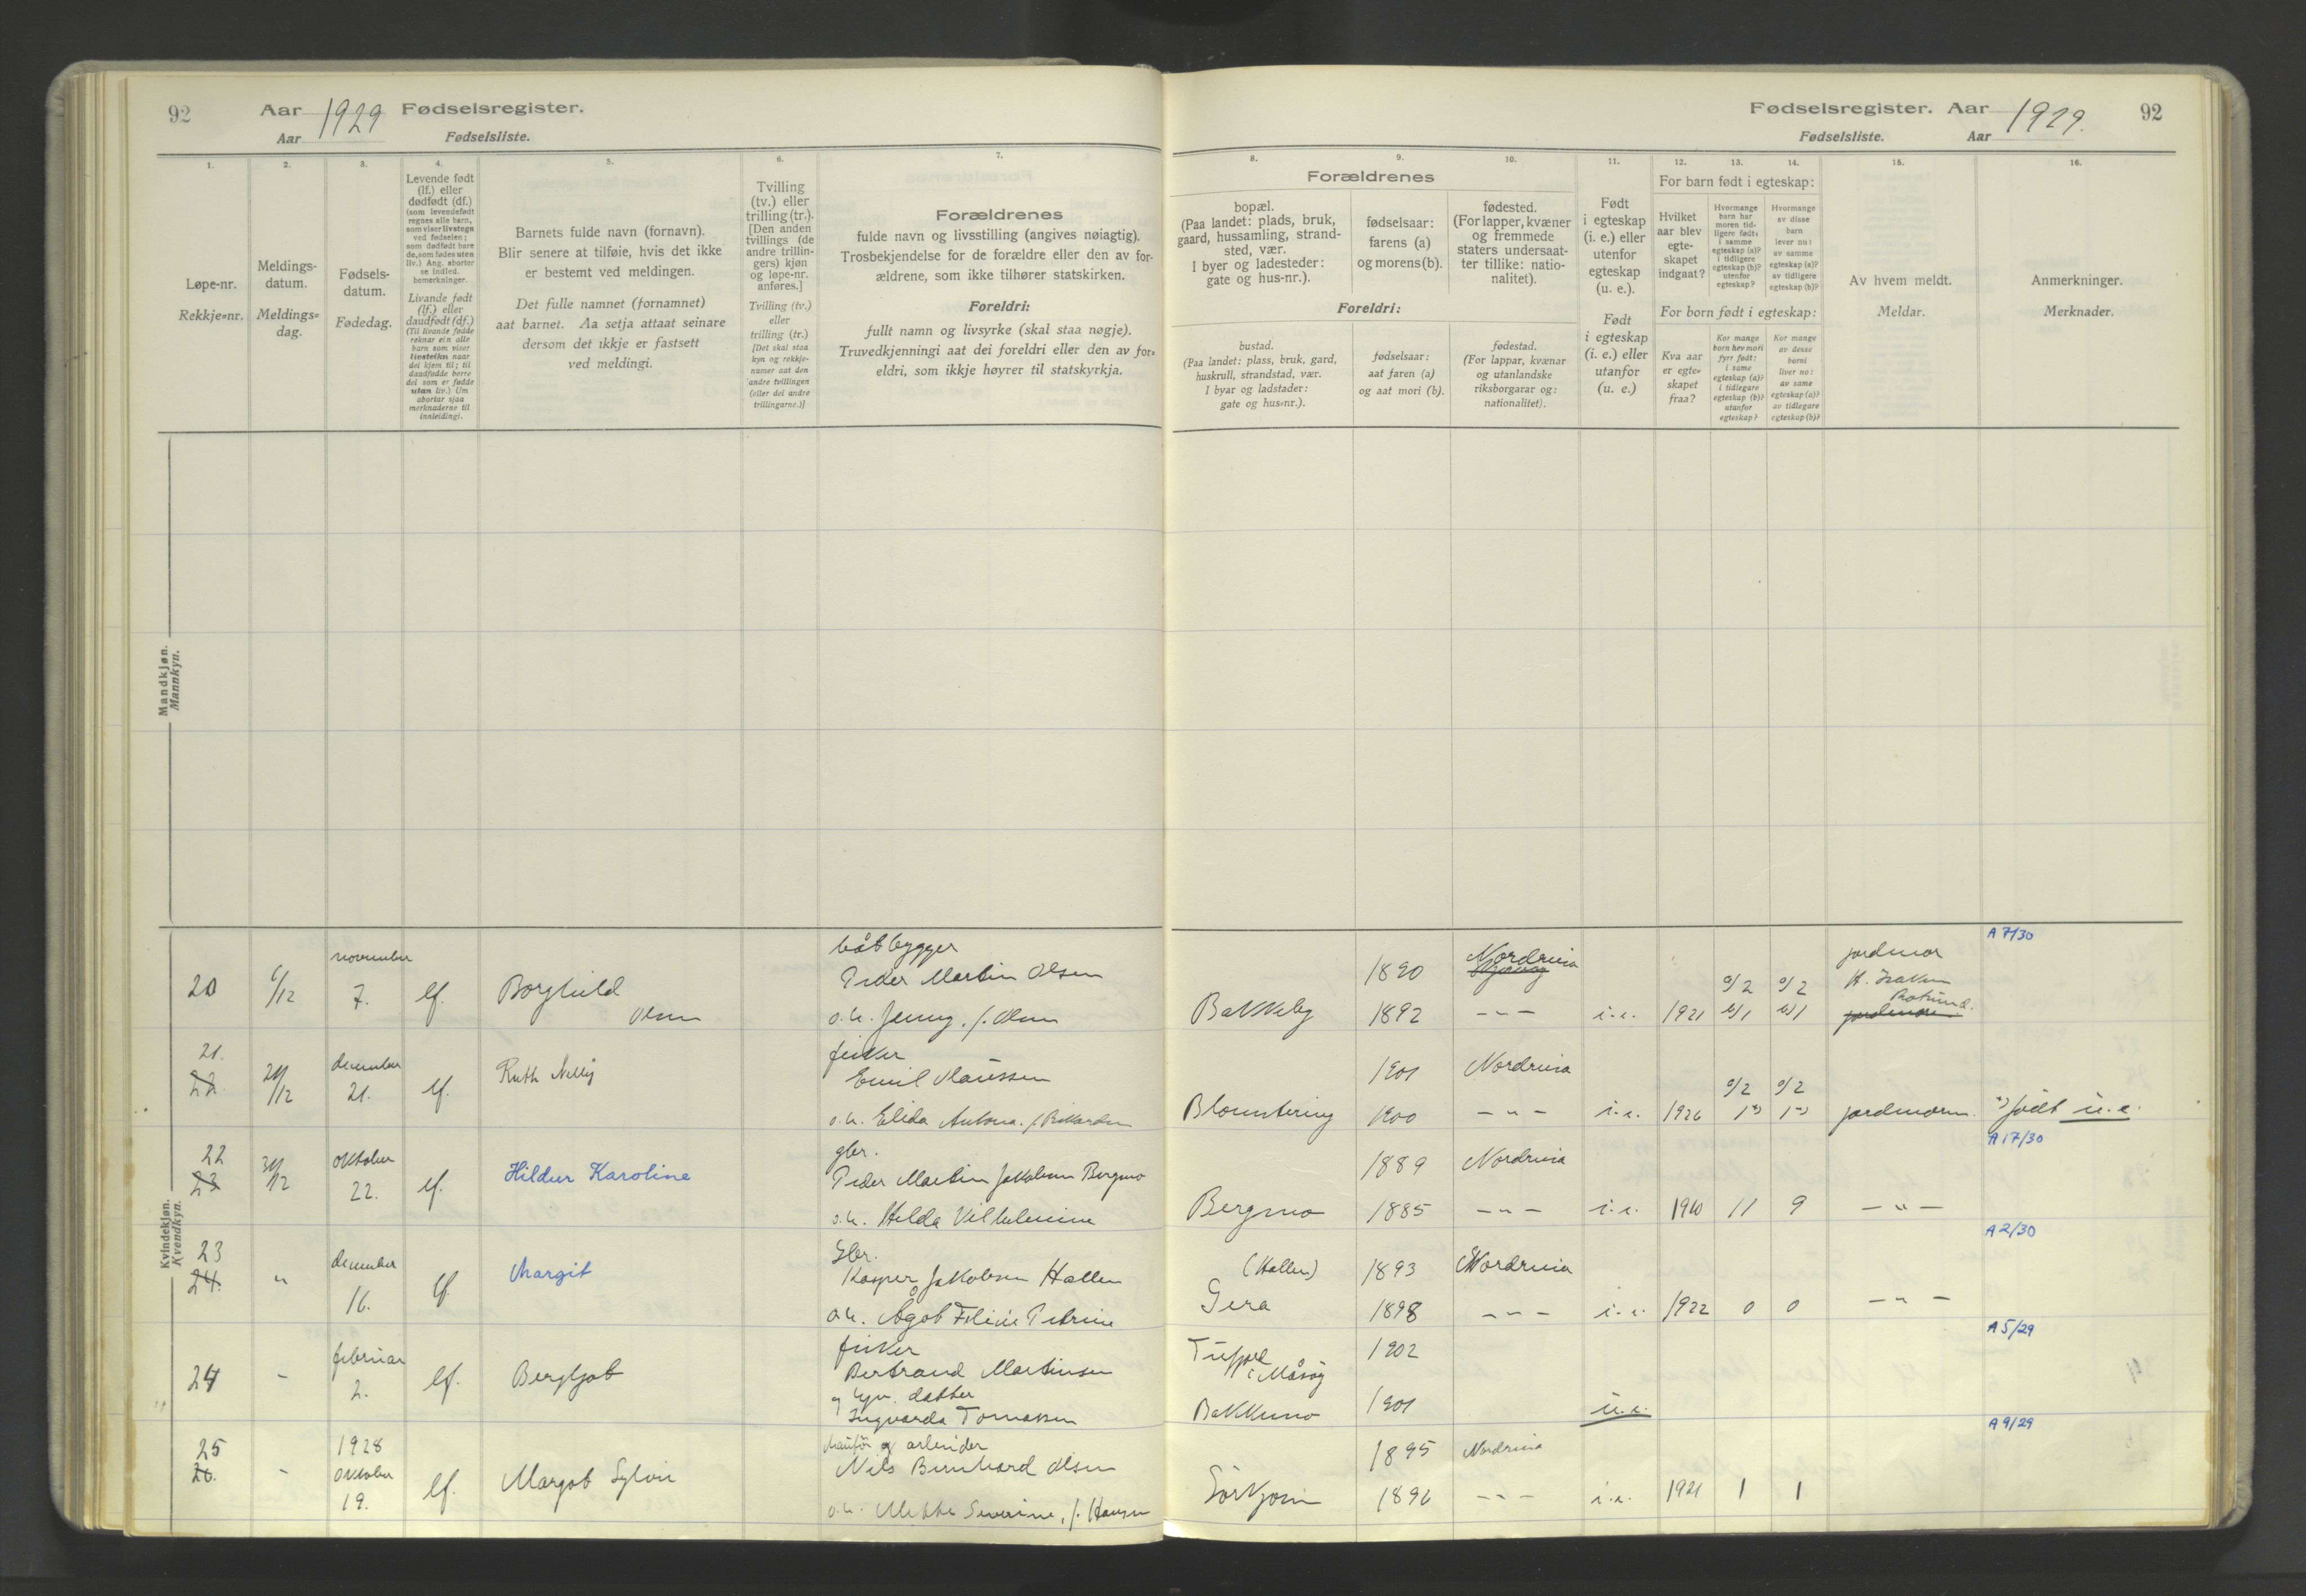 92 Aar 1929 Fødselsregister.
Aar Fødselsliste.
Fødselsregister. Aar 1929. 92
Fødselsliste. Aar
1.
Løpe-nr.
Rekkje=nr.
2.
Meldings-
datum.
Meldings=
dag.
3.
Fødsels-
datum.
Fødedag.
4.
Levende født
(lf.) eller
dødfødt (df.)
(som levendefødt
regnes alle barn,
som viser livstegn
ved fødselen;
som dødfødt bare
de, som fødes uten
liv.) Ang. aborter
se indled.
bemerkninger.
Livande født
(lf.) eller
daudfødt (df.)
(Til livande fødde
reknar ein alle
barn som viser
livsteikn naar
dei kjem til; til
daudfødde berre
dei som er fødde
utan liv.) Um
abortar sjaa
merknaderne til
innleidingi.
5.
Barnets fulde navn (fornavn).
Blir senere at tilføie, hvis det ikke
er bestemt ved meldingen.
Det fulle namnet (fornamnet)
aat barnet. Aa setja attaat seinare
dersom det ikkje er fastsett
ved meldingi.
6.
Tvilling
(tv.) eller
trilling (tr.).
[Den anden
tvillings (de
andre trillin-
gers) kjøn
og løpe-nr.
anføres.]
Tvilling (tv.)
eller
trilling (tr.)
[Det skal staa
kyn og rekkje-
numer aat den
andre tvillingen
(eller dei andre
trillingarne.)]
7.
Forældrenes
fulde navn og livsstilling (angives nøiagtig).
Trosbekjendelse for de forældre eller den av for-
ældrene, som ikke tilhører statskirken.
Foreldri:
fullt namn og livsyrke (skal staa nøgje).
Truvedkjenningi aat dei foreldri eller den av for=
eldri, som ikkje høyrer til statskyrkja.
8.
Forældrenes
bopæl.
(Paa landet: plads, bruk,
gaard, hussamling, strand-
sted, vær.
I byer og ladesteder:
gate og hus-nr.).
Foreldri:
bustad.
(Paa landet: plass, bruk, gard,
huskrull, strandstad, vær.
I byar og ladstader:
gate og hus=nr.).
9.
fødselsaar:
farens (a)
og morens (b).
fødselsaar:
aat faren (a)
og aat mori (b).
10.
fødested.
(For lapper, kvæner
og fremmede
staters undersaat-
ter tillike: natio-
nalitet).
fødestad.
(For lappar, kvænar
og utanlandske
riksborgarar og:
nationalitet).
11.
Født
i egteskap
(i. e.) eller
utenfor
egteskap
(u. e.).
Født
i egteskap
(i. e.) eller
utanfor
(u. e.)
12. 13. 14.
For barn født i egteskap:
Hvilket
aar blev
egte-
skapet
indgaat?
Hvormange
barn har
moren tid-
ligere født:
i samme
egteskap (a)?
i tidligere
egteskap (b)?
utenfor
egteskap?
Hvormange
av disse
barn
lever nu:
av samme
egteskap (a)?
av tidligere
egteskap (b)?
For born født i egteskap:
Kva aar
er egte=
skapet
fraa?
Kor mange
born hev mori
fyrr født:
i same
egteskap (a)?
i tidlegare
egteskap (b)?
utanfor
egteskap?
Kor mange
av desse
borni
liver no:
av same
egteskap (a)?
av tidlegare
egteskap (b)?
15.
Av hvem meldt.
Meldar.
16.
Anmerkninger.
Merknader.
Mandkjøn.
Mannkyn.
Kvindekjøn.
Kvendkyn.
A 7/30
november båtbygger Nordreisa jordmor
20 6/12 7. lf. Borghild Peder Martin Olsen 1890 a/2 a/2
Olsen o.h. Jenny, f. Olsen Bakkeby 1892 - " - i.e. 1921 b/1 b/1 jordmoren
21. december fisker
22. 28/12 21. lf. Ruth Nelly Emil Maurssen 1901 Nordreisa a/2 a/2
o.h. Elida Antona. f. Rikardsen Blomstereng 1900 - " - i.e. 1926 1*) 1*) jordmoren *) født u.e.
22 oktober gbr. A 17/30
23 30/12 22. lf. Hildur Karoline Peder Martin Jakobsen Bergmo 1889 Nordreisa
o.h. Hilda Vilhelmine Bergmo 1885 - " - i.e. 1910 11 9 - " -
23 december Gbr. A 2/30
24. " 16. lf. Margit Kasper Jakobsen Hallen (Hallen) 1893 Nordreisa
o.h. Ågot Feline Petrine Gera 1898 - " - i.e. 1922 0 0 - " -
februar fisker A 5/29
24 - 2. lf. Bergljot Bertrand Martinsen Tufjord i Måsøy 1902
og gbr. datter
Ingvarda Tomassen Bakkemo 1901 u.e.
25 1928 og arbeider A 9/29
26. - oktober 19. lf. Margot Sylvi Nils Bernhard Olsen 1895 Nordreisa
o.h. Mette Severine, f. Hansen Sörkjosen 1896 - " - i.e. 1921 1 1